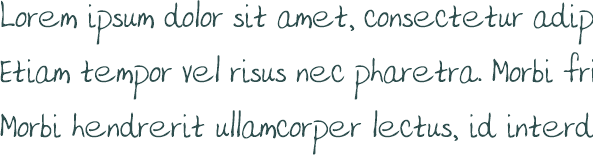 Lorem ipsum dolor sit amet, consectetur adip
Etiam tempor vel risus nec pharetra. Morbi fri
Morbi hendrerit ullamcorper lectus, id interd